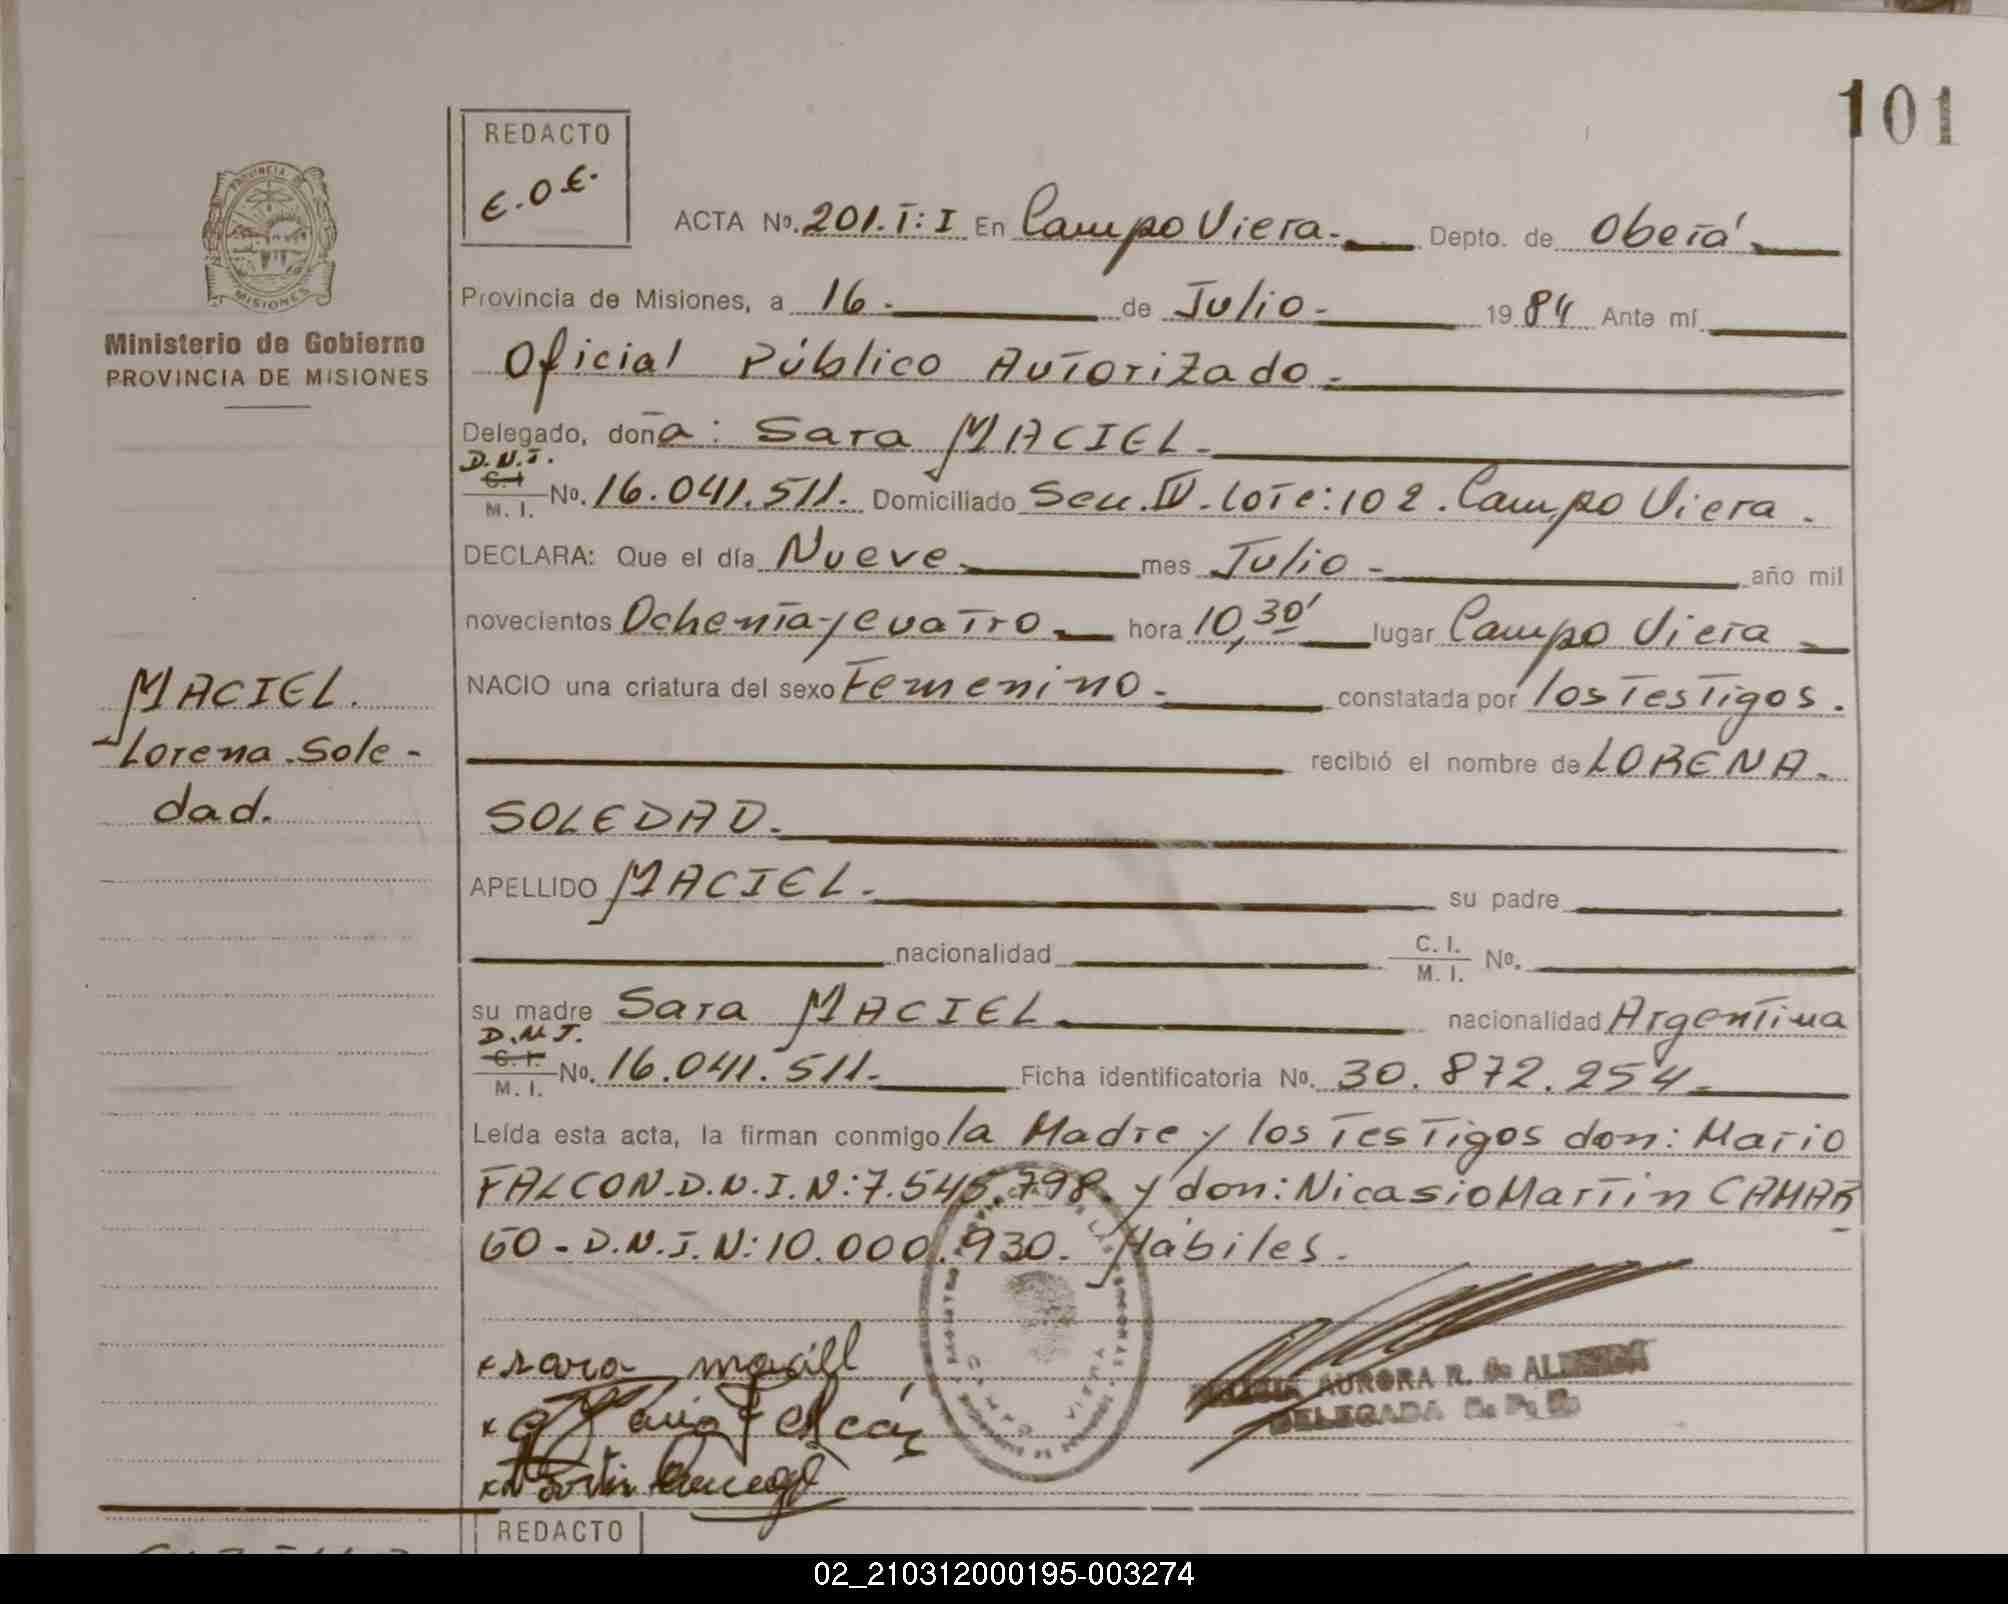 101
REDACTO
E.O.E.
PROVINCIA DE
MISIONES
Ministerio de Gobierno
PROVINCIA DE MISIONES
ACTA No. 201.T:I En Campo Viera.- Depto. de Oberá
Provincia de Misiones, a 16.- de Julio.- 1984 Ante mí
Oficial Público Autorizado.-
Delegado, doña: Sara MACIEL.-
D.N.I.
C.I.
M. I. No. 16.041.511. Domiciliado Secc. IV-Lote:102. Campo Viera.
DECLARA: Que el día Nueve mes Julio.- año mil
novecientos Ochenta y cuatro.- hora 10,30' lugar Campo Viera
NACIO una criatura del sexo Femenino.- constatada por los Testigos.
recibió el nombre de LORENA.
SOLEDAD.-
APELLIDO MACIEL.- su padre
nacionalidad C. I. M. I. No.
su madre Sara MACIEL nacionalidad Argentina
D.N.I.
C. I.
M. I. No. 16.041.511.- Ficha identificatoria No. 30.872.254.-
Leída esta acta, la firman conmigo la Madre y los Testigos don: Mario
FALCON.D.N.I.N:7.545.798. y don: Nicasio Martin CAMAR
GO-D.N.I.N:10.000.930. Hábiles.
MACIEL.
Lorena.Sole-
dad.
x Sara
AURORA R. de
DELEGADA
REDACTO
02_210312000195-003274